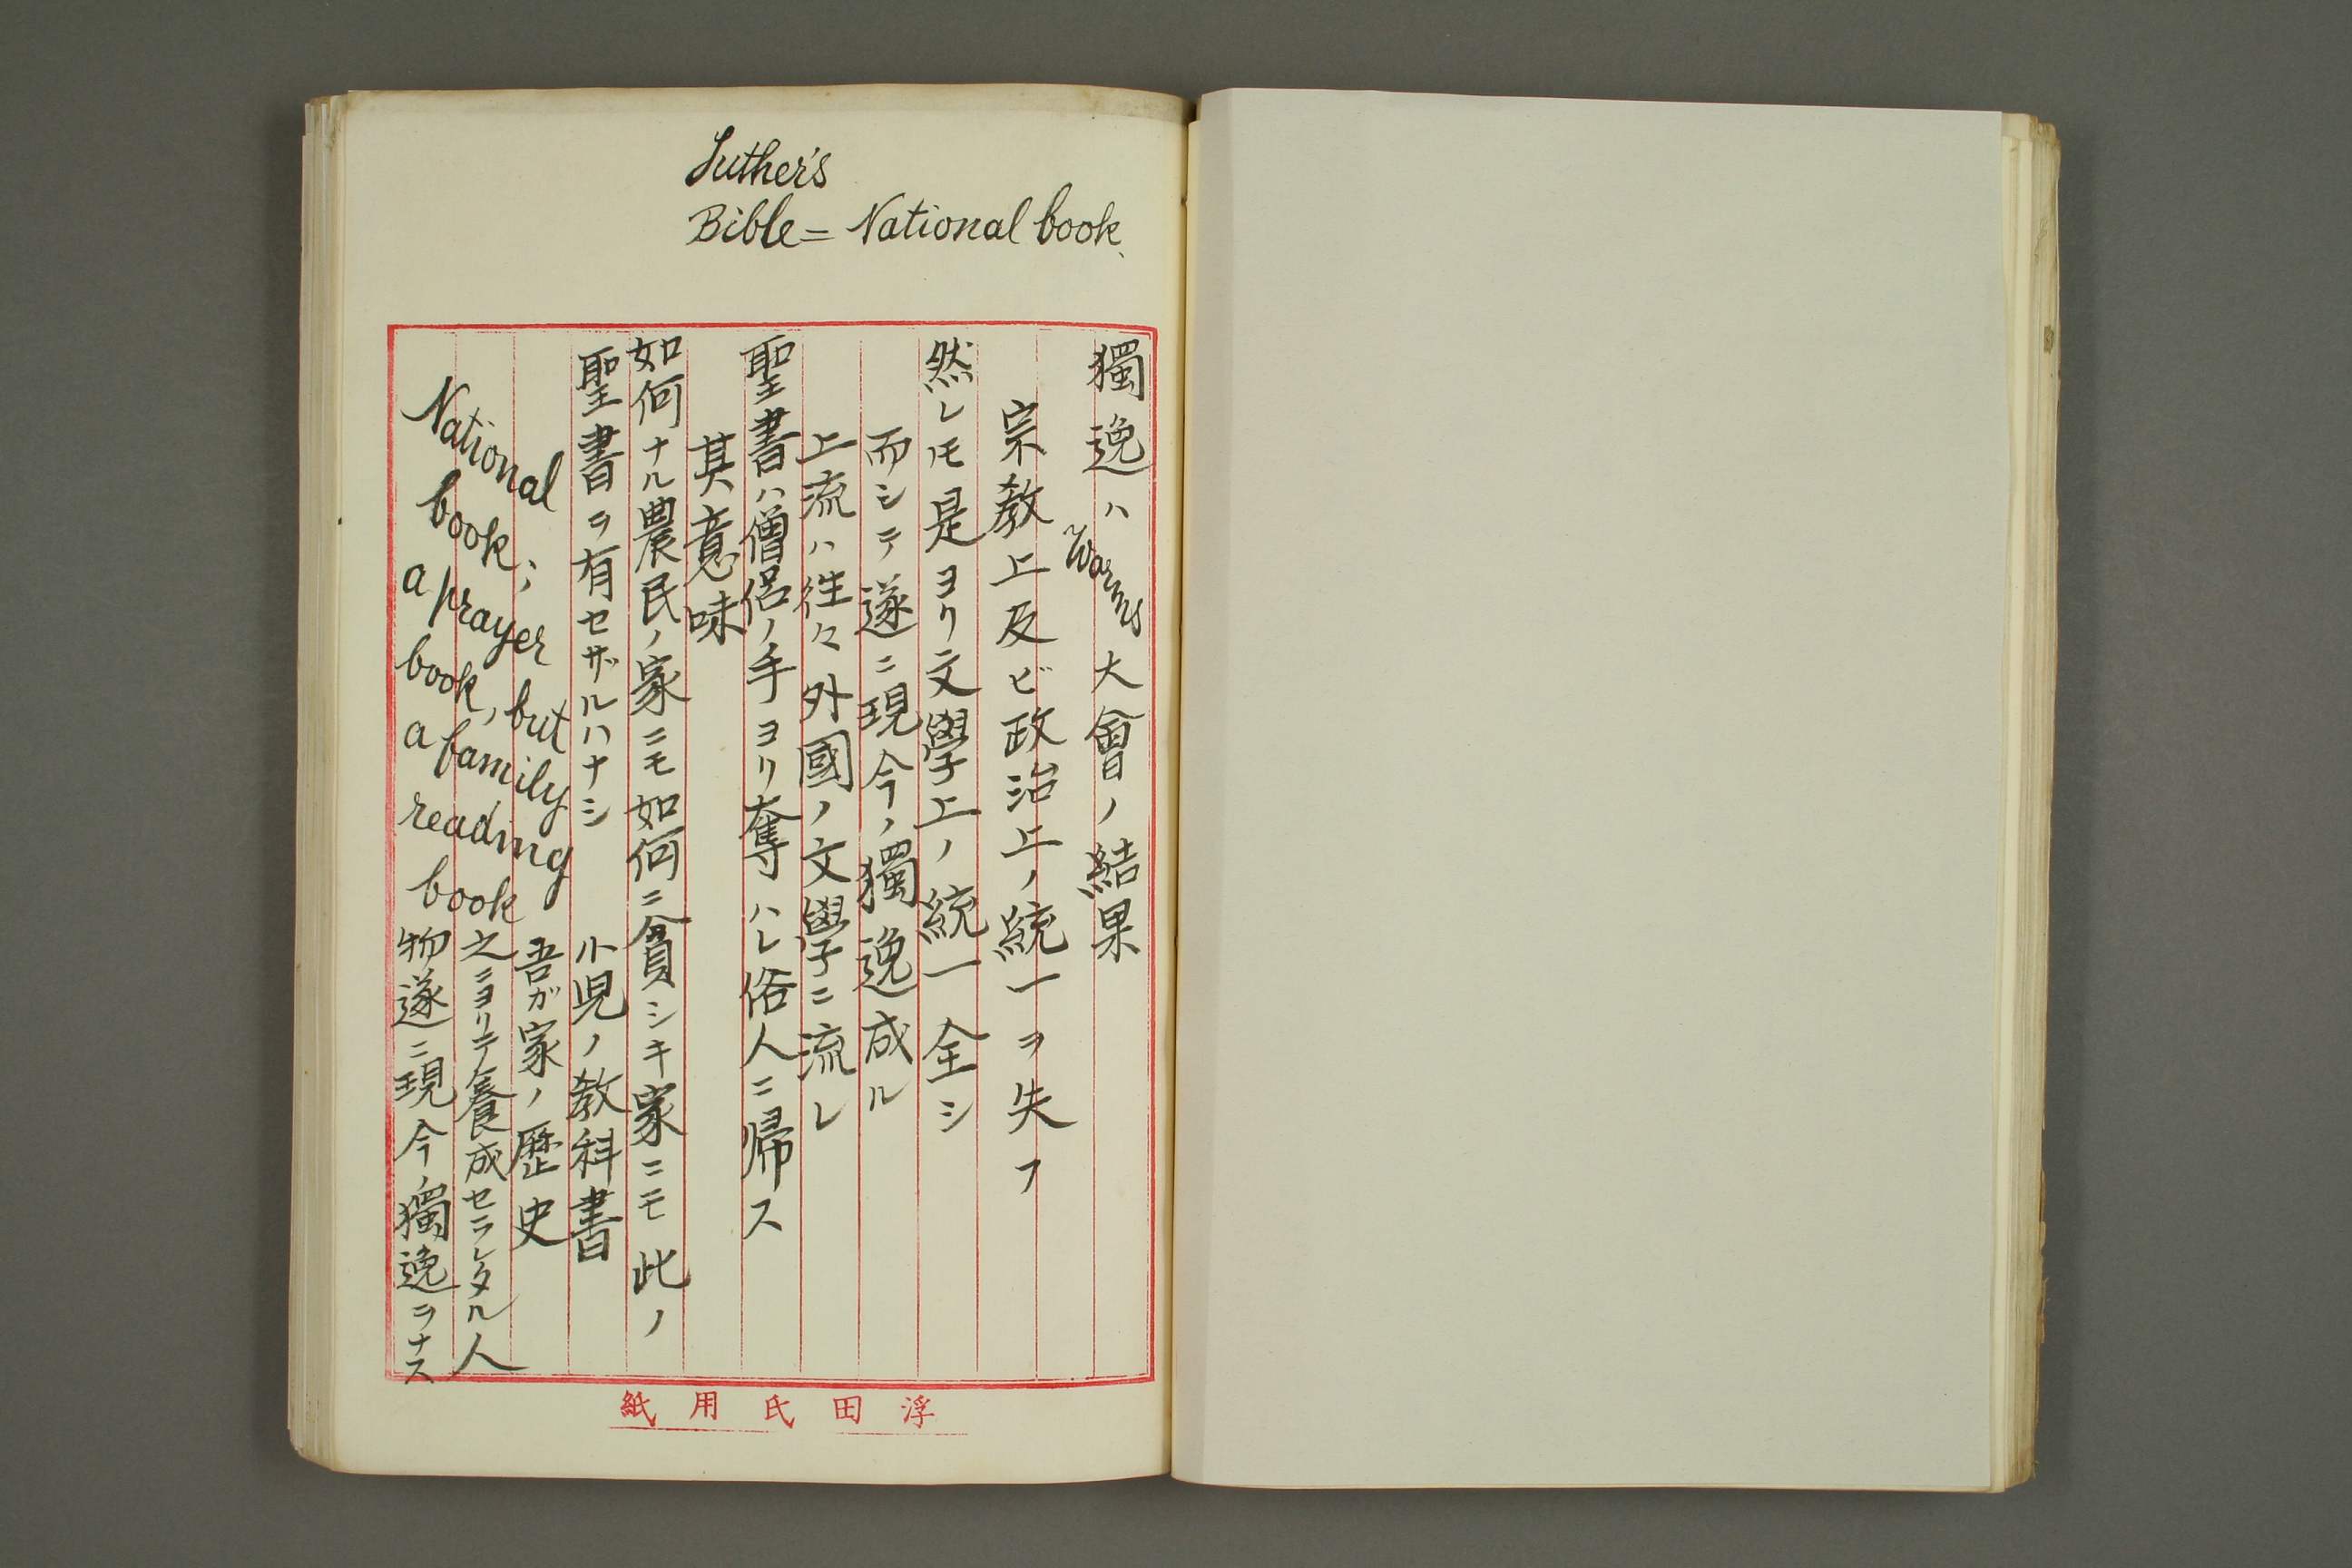 Luther's
Bible = National book、
獨逸ハWorms大會ノ結果
宗教上及ビ政治上ノ統一ヲ失フ
然レモ是ヨリ文學上ノ統一全シ
而シテ遂ニ現今ノ獨逸成ル
上流ハ往々外國ノ文學ニ流レ
聖書ハ僧侶ノ手ヨリ奪ハレ俗人ニ帰ス
其意味
如何ナル農民ノ家ニモ如何ニ貧シキ家ニモ此ノ
聖書ヲ有セザルハナシ
小児ノ教科書
吾ガ家ノ歴史
National
book;
a prayer
book, but
a family
reading
book
之ニヨリテ養成セラレタル人
物遂ニ現今ノ獨逸ヲナス
浮田氏用紙